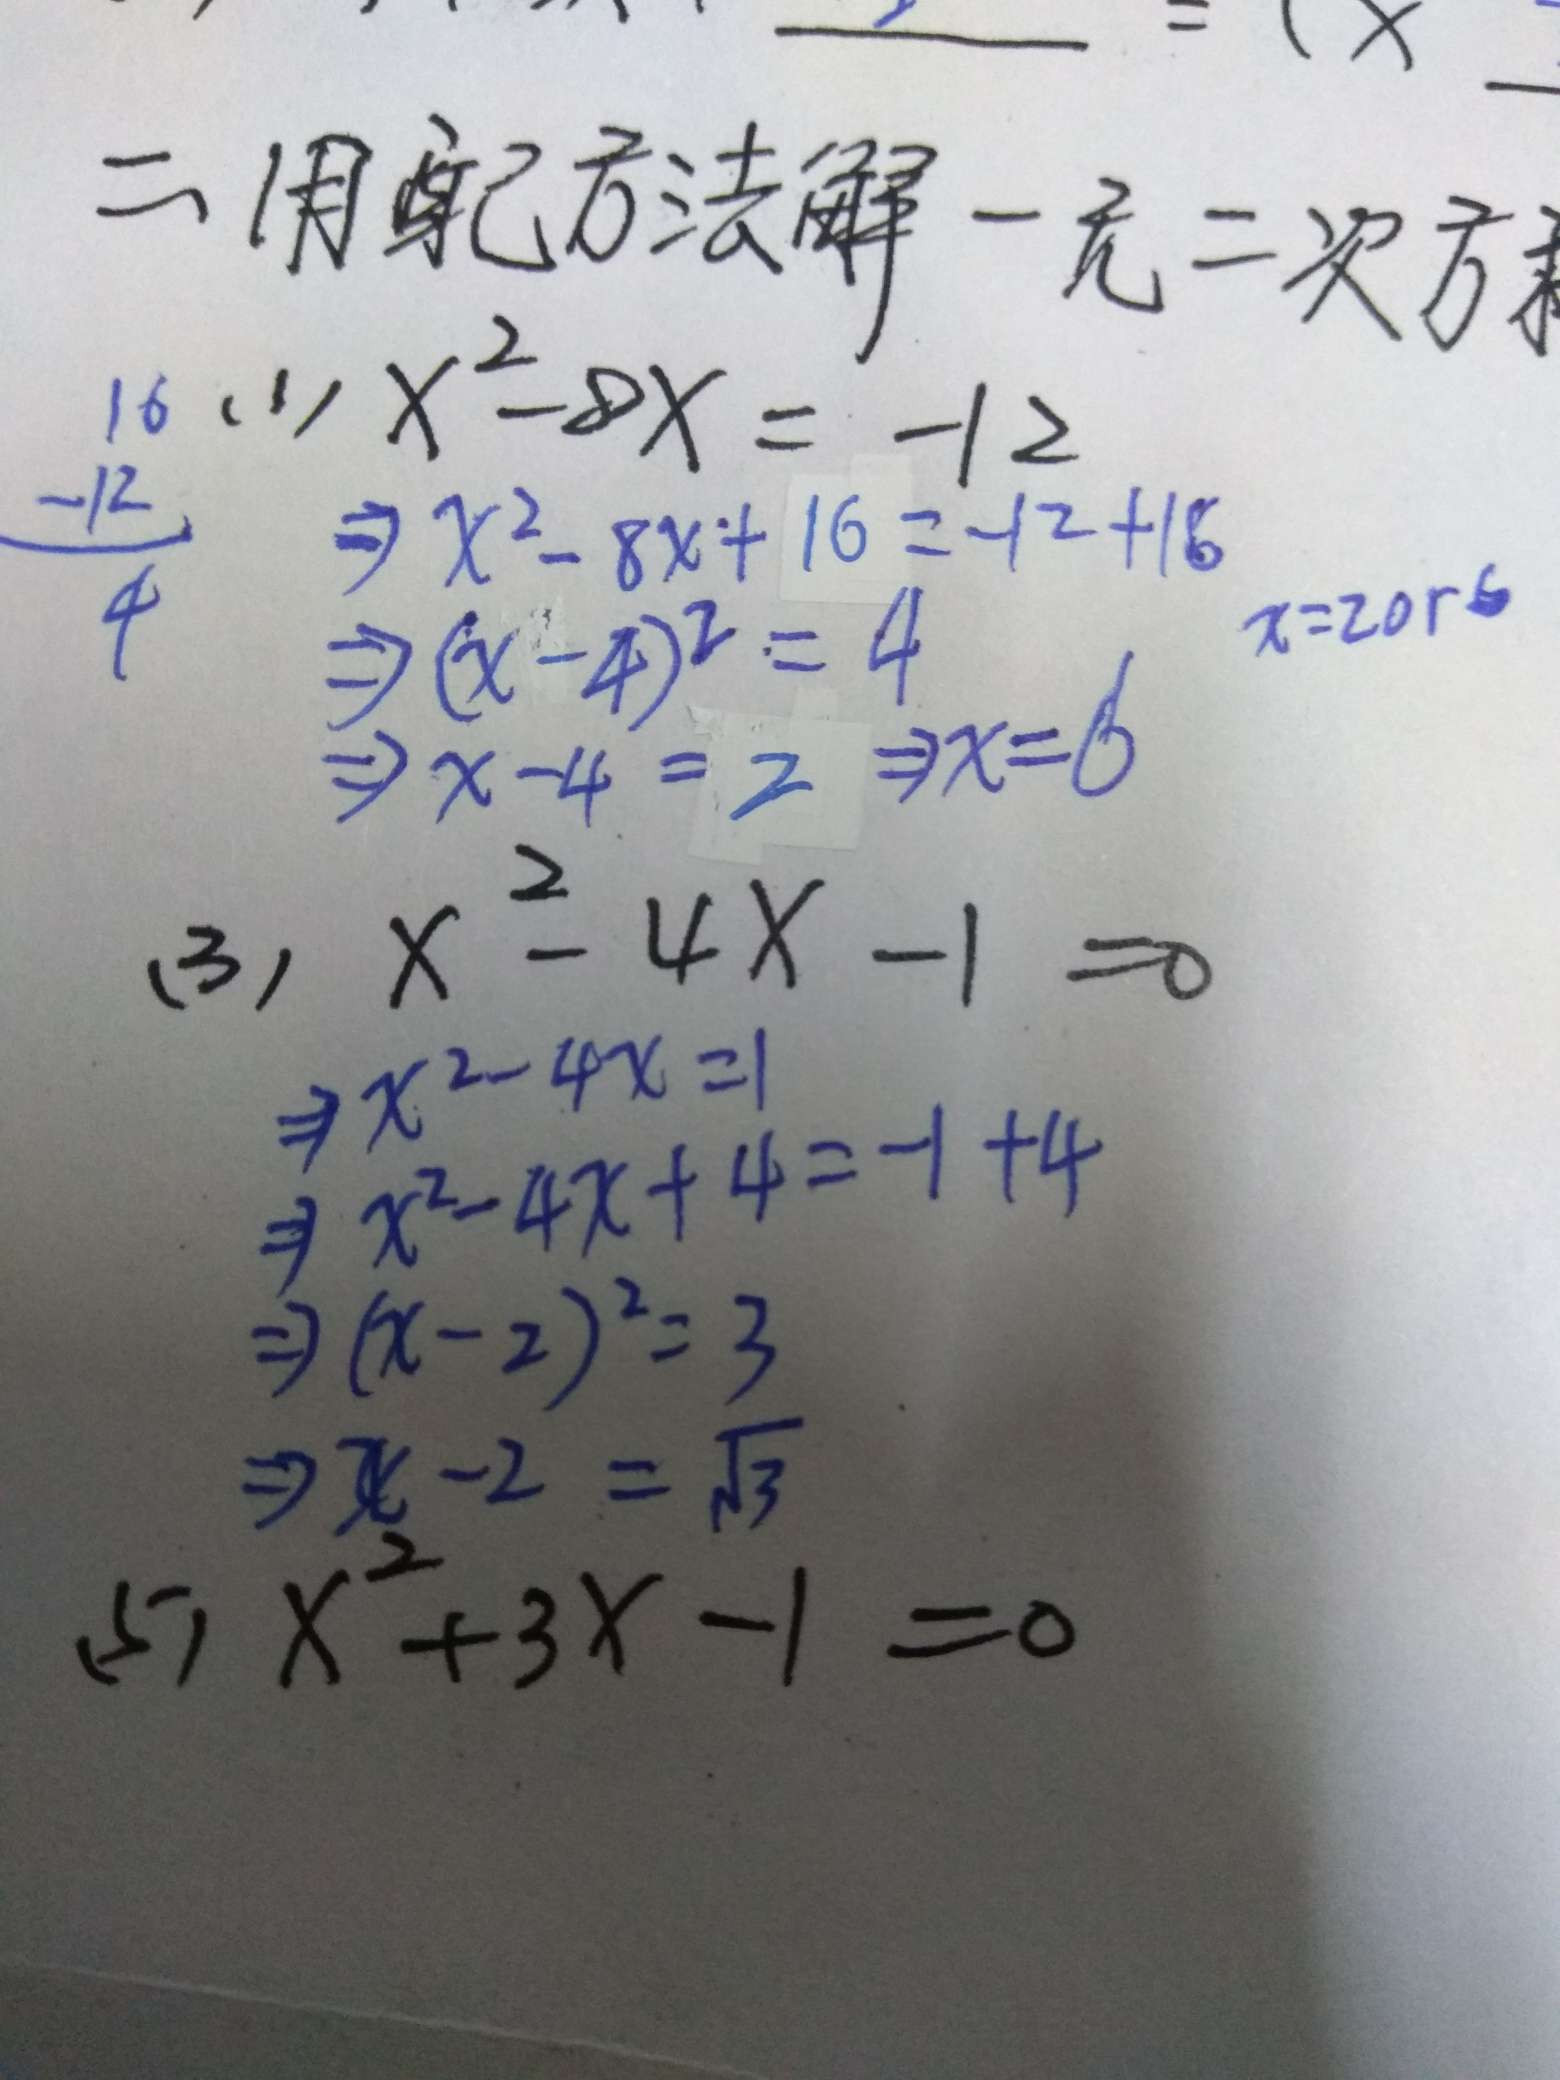 = (x
二、用配方法解一元二次方
(1) x²-8x = -12
16
-12
4
⇒ x²-8x+16=-12+16
⇒ (x-4)² = 4
x=2 or 6
⇒ x-4 = 2 ⇒ x=6
(3) x²-4x-1=0
⇒ x²-4x=1
⇒ x²-4x+4=-1+4
⇒ (x-2)²=3
⇒ x-2 = √3
(5) x²+3x-1=0